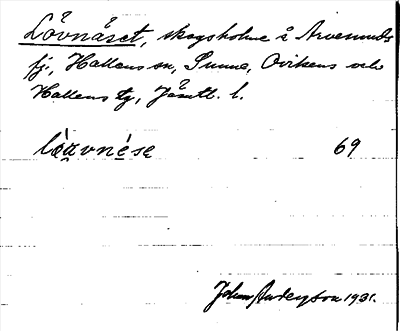 Lövnäset, skogsholme i Arvesunds
fj., Hallens sn, Sunne, Ovikens och
Hallens tg, Jämtl. l.
69
John Anderson 1931.